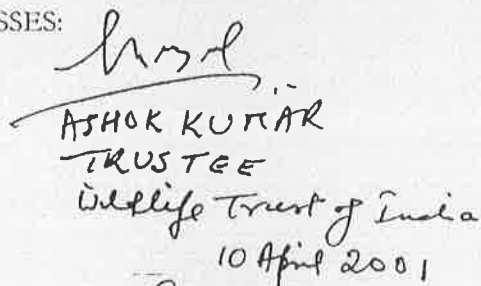 SSES:
ASHOK KUMAR
TRUSTEE
Wildlife Trust of India
10 April 2001